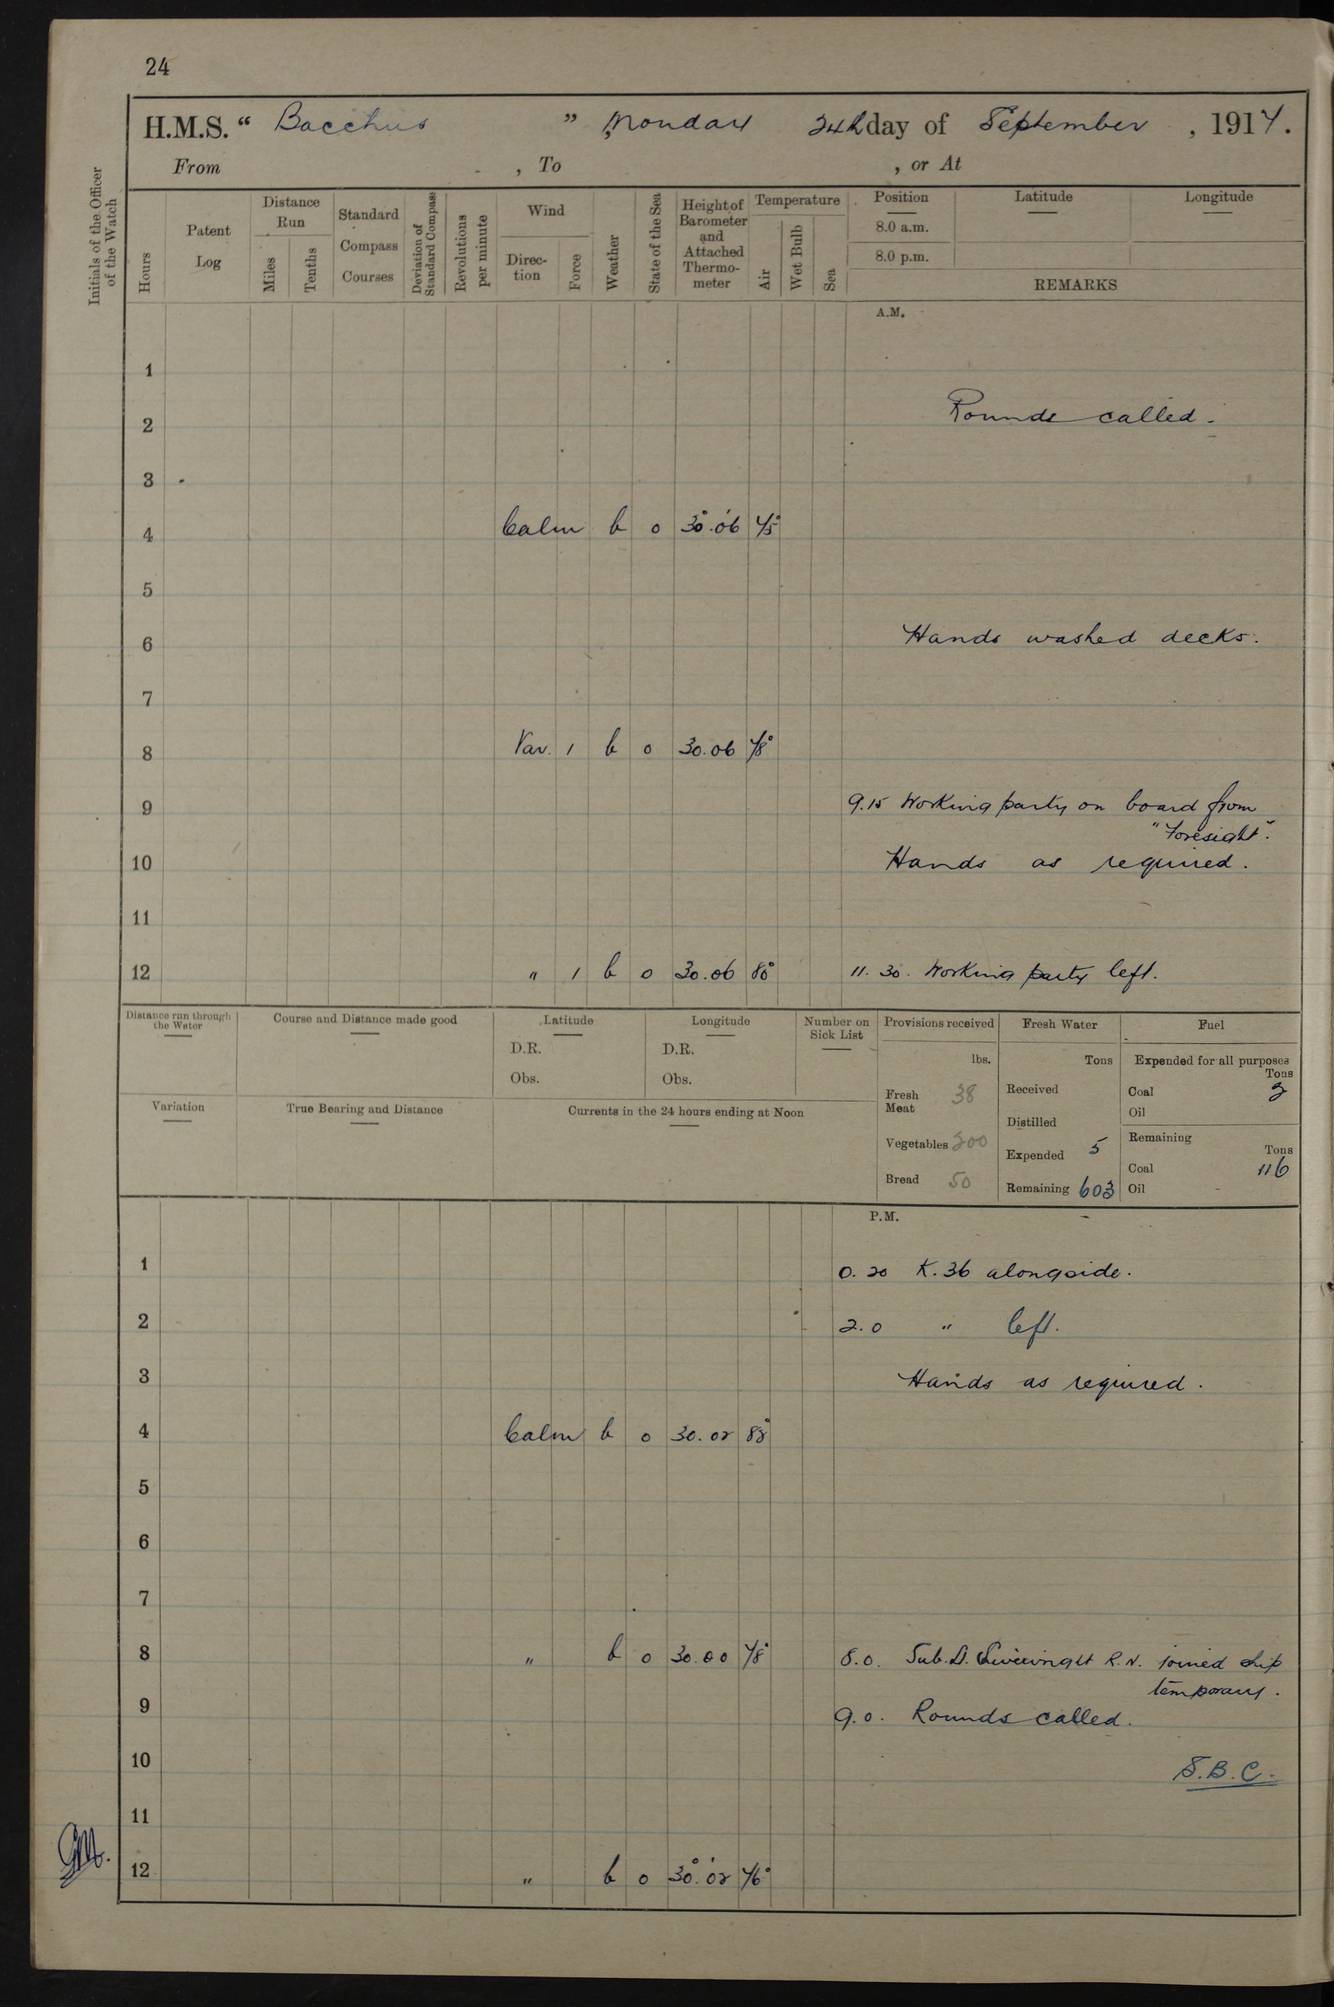 24
H.M.S. “ Bacchus ” , Monday 24th day of September , 1917.
From , To , or At
Initials of the Officer of the Watch
Hours
Patent Log
Distance Run
Miles
Tenths
Standard Compass Courses
Deviation of Standard Compass
Revolutions per minute
Wind
Direction
Force
Weather
State of the Sea
Height of Barometer and Attached Thermometer
Temperature
Air
Wet Bulb
Sea
Position Latitude Longitude
8.0 a.m.
8.0 p.m.
REMARKS
A.M.
1
2 Rounds called.
3
4 Calm b 0 30°.06 75°
5
6 Hands washed decks.
7
8 Var. 1 b 0 30.06 78°
9 9.15 Working party on board from
"Foresight".
10 Hands as required.
11
12 " 1 b 0 30.06 80° 11.30. Working party left.
Distance run through the Water
Course and Distance made good
Latitude
D.R.
Obs.
Longitude
D.R.
Obs.
Number on Sick List
Provisions received
lbs.
Fresh Meat 38
Vegetables 200
Bread 50
Fresh Water
Tons
Received
Distilled
Expended 5
Remaining 603
Fuel
Expended for all purposes
Tons
Coal 2
Oil
Remaining
Tons
Coal 116
Oil -
Variation
True Bearing and Distance
Currents in the 24 hours ending at Noon
P.M.
1 0.20 K.36 alongside.
2 2.0 " left.
3 Hands as required.
4 Calm b 0 30.02 82°
5
6
7
8 " b 0 30.00 78° 8.0. Sub. Lt. R.N. joined ship
temporary.
9 9.0. Rounds called.
10 S.B.C.
11
12 " b 0 30°.02 76°